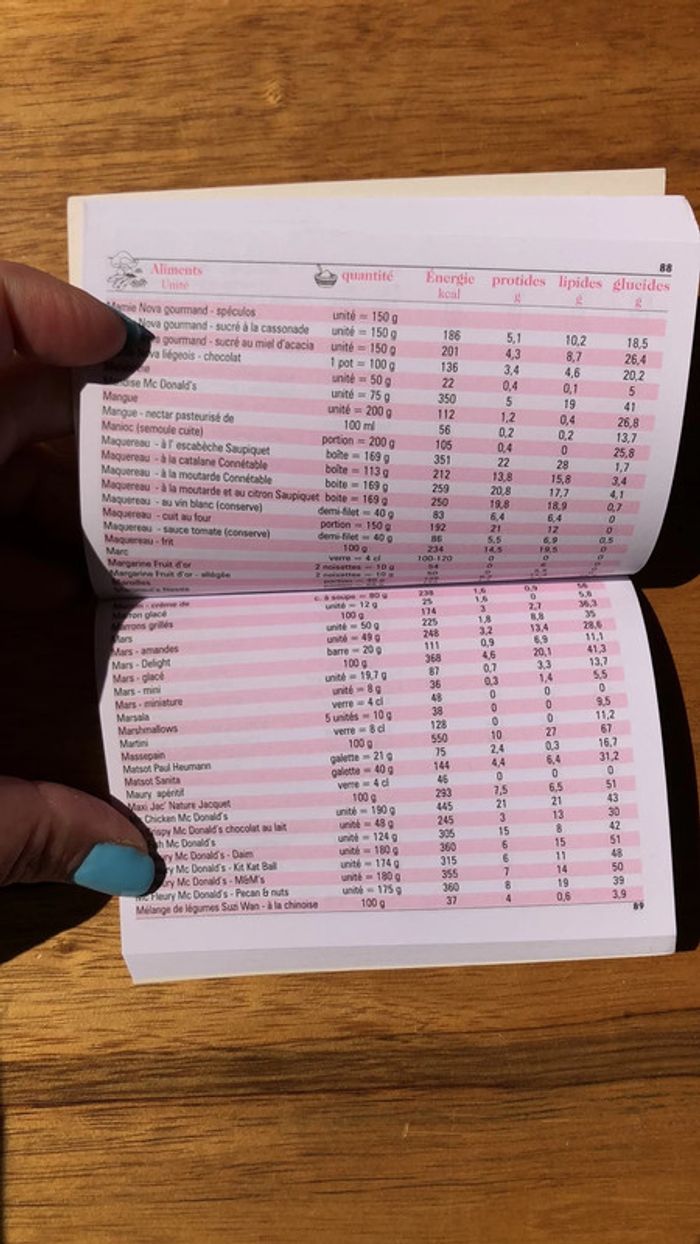 88
Aliments quantité Énergie protides lipides glucides
Unité kcal g g g
Mamie Nova gourmand - spéculos unité = 150 g
Nova gourmand - sucré à la cassonade unité = 150 g 186 5,1 10,2 18,5
gourmand - sucré au miel d'acacia unité = 150 g 201 4,3 8,7 26,4
liégeois - chocolat 1 pot = 100 g 136 3,4 4,6 20,2
unité = 50 g 22 0,4 0,1 5
Mc Donald's unité = 75 g 350 5 19 41
Mangue unité = 200 g 112 1,2 0,4 26,8
Mangue - nectar pasteurisé de 100 ml 56 0,2 0,2 13,7
Manioc (semoule cuite) portion = 200 g 105 0,4 0 25,8
Maquereau - à l' escabèche Saupiquet boîte = 169 g 351 22 28 1,7
Maquereau - à la catalane Connétable boîte = 113 g 212 13,8 15,8 3,4
Maquereau - à la moutarde Connétable boite = 169 g 259 20,8 17,7 4,1
Maquereau - à la moutarde et au citron Saupiquet boite = 169 g 250 19,8 18,9 0,7
Maquereau - au vin blanc (conserve) demi-filet = 40 g 83 6,4 6,4 0
Maquereau - cuit au four portion = 150 g 192 21 12 0
Maquereau - sauce tomate (conserve) demi-filet = 40 g 86 5,5 6,9 0,5
Maquereau - frit 100 g 234 14,5 19,5 0
Marc verre = 4 cl 100-120 0 0 0
Margarine Fruit d'or 2 noisettes = 10 g 54 0 6 0
Margarine Fruit d'or - allégée 2 noisettes = 10 g
Maroilles
- crème de c. à soupe = 80 g 238 1,6 0,9 56
Marron glacé unité = 12 g 25 1,6 0 5,8
Marrons grillés 100 g 174 3 2,7 36,3
Mars unité = 50 g 225 1,8 8,8 35
Mars - amandes unité = 49 g 248 3,2 13,4 28,6
Mars - Delight barre = 20 g 111 0,9 6,9 11,1
Mars - glacé 100 g 368 4,6 20,1 41,3
Mars - mini unité = 19,7 g 87 0,7 3,3 13,7
Mars - miniature unité = 8 g 36 0,3 1,4 5,5
Marsala verre = 4 cl 48 0 0 0
Marshmallows 5 unités = 10 g 38 0 0 9,5
Martini verre = 8 cl 128 0 0 11,2
Massepain 100 g 550 10 27 67
Matsot Paul Heumann galette = 21 g 75 2,4 0,3 16,7
Matsot Sanita galette = 40 g 144 4,4 6,4 31,2
Maury apéritif verre = 4 cl 46 0 0 0
Maxi Jac' Nature Jacquet 100 g 293 7,5 6,5 51
Chicken Mc Donald's unité = 190 g 445 21 21 43
Mc Donald's chocolat au lait unité = 48 g 245 3 13 30
Mc Donald's unité = 124 g 305 15 8 42
Mc Donald's - Daim unité = 180 g 360 6 15 51
Mc Donald's - Kit Kat Ball unité = 174 g 315 6 11 48
Mc Donald's - M&M's unité = 180 g 355 7 14 50
Mc Fleury Mc Donald's - Pecan & nuts unité = 175 g 360 8 19 39
Mélange de légumes Suzi Wan - à la chinoise 100 g 37 4 0,6 3,9
89